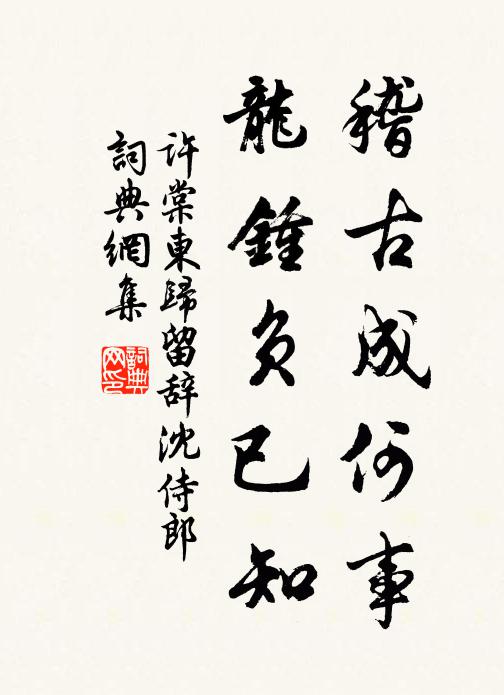 稽古成何事
龍鍾負已知
許棠東歸留辞沈侍郎
詞典網集
詞典
网印